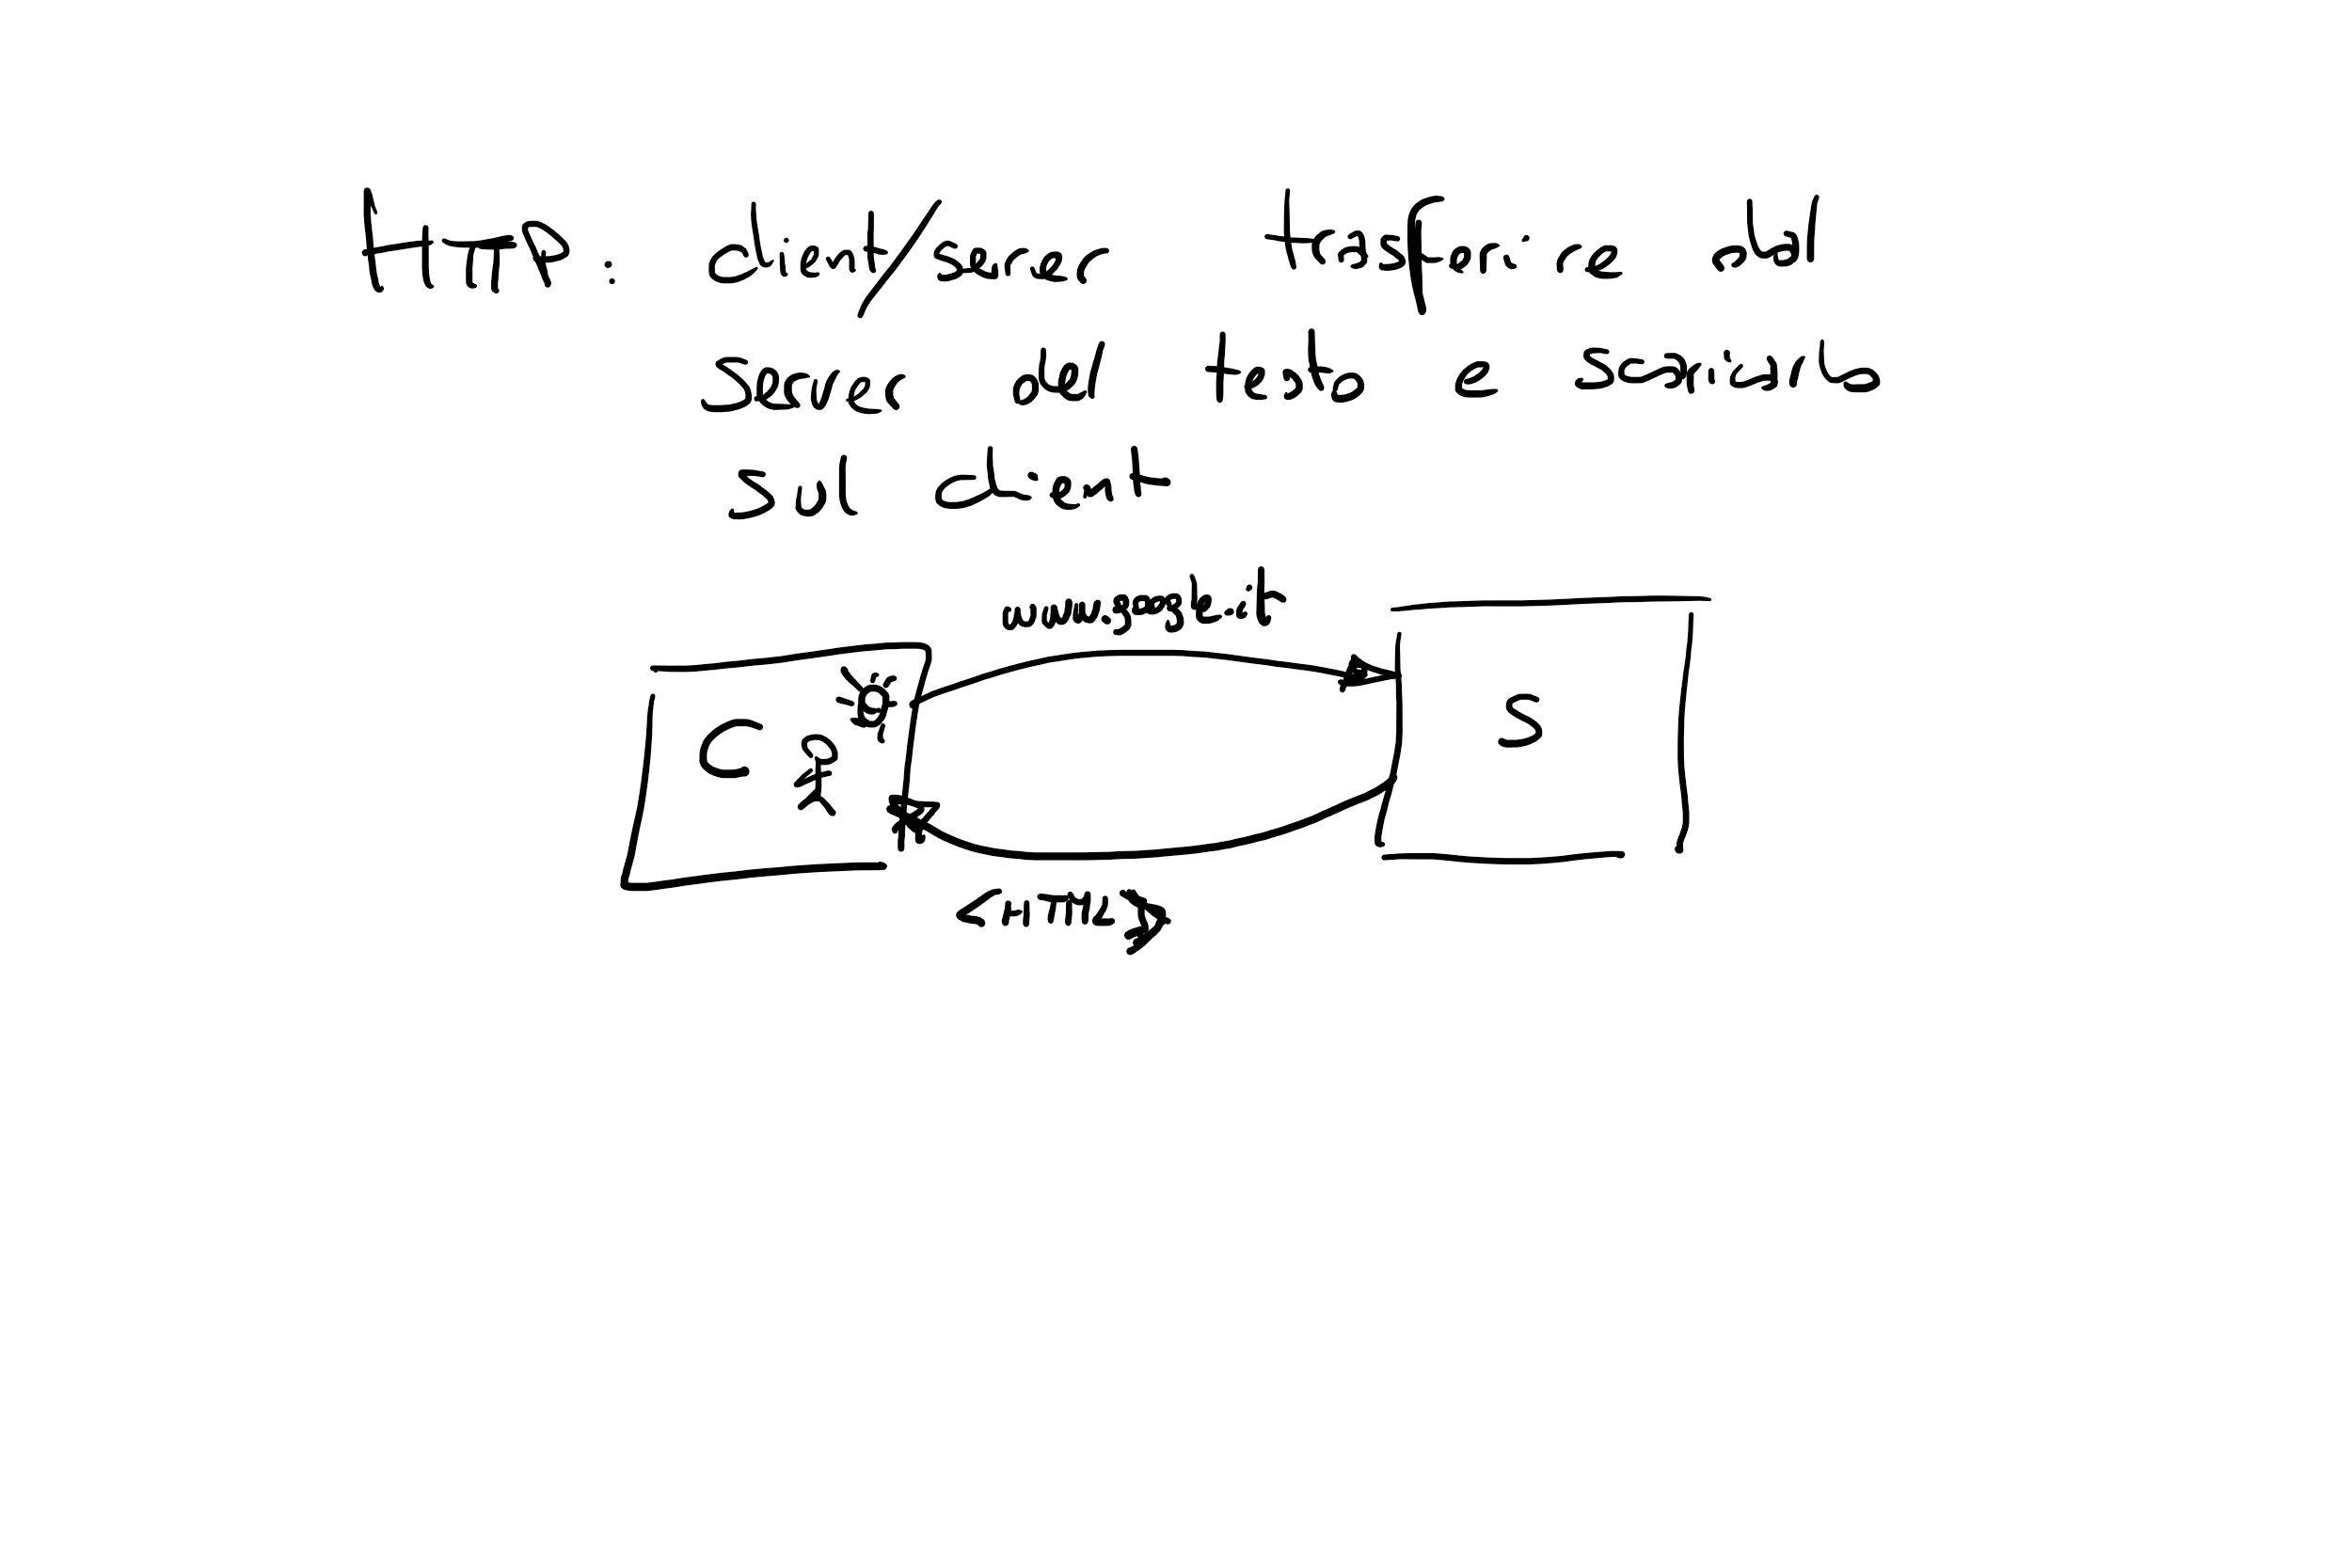 HTTP: client/server trasferire dal
server del testo e scaricarlo
sul client
www.google.it
C
S
<HTML>